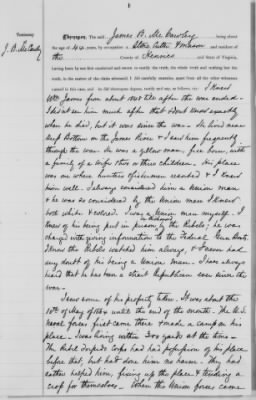 Testimony
J. B. McCawley
Thereupon, Came James B. McCawley being about
the age of 44 years, by occupation a Stone Cutter & mason and resident of
the County of Henrico and State of Virginia,
having been by me first examined and sworn to testify the truth, the whole truth and nothing but the
truth, in the matter of the claim aforesaid; I did carefully examine, apart from all the other witnesses
named in this case, and said deponent did thereupon depose, testify and say, as follows, viz: I knew
Wm James from about 1855 till after the war ended.
I did not see him much after that & dont know exactly
when he died, but it was since the war. He lived near
Deep Bottom on the James River & I saw him frequently
through the war. He was a yellow man, free born, with
a family of a wife & two or three children. His place
was one where hunters & fishermen wanted & I knew
him well. I always considered him a Union man
& he was so considered by the Union men I knew
both white & colored. I was a Union man myself. I
knew of his being put in prison by the Rebels; he was
charged with giving information to the Federal Gun boats.
I know the Rebels watched him always, & I never had
any doubt of his being a Union man. I have always
heard that he has been a strict Republican ever since the
war.
I saw some of his property taken. It was about the
10th of May 1864 until the end of the month. The U.S.
naval forces first came there & made a camp on his
place. I was living within 300 yards at the time.
The Rebel Torpedo Corps had had possession of his place
before that, but had done him no harm. They had
rather helped him, fixing up the place & tending a
crop for themselves. When the Union forces came